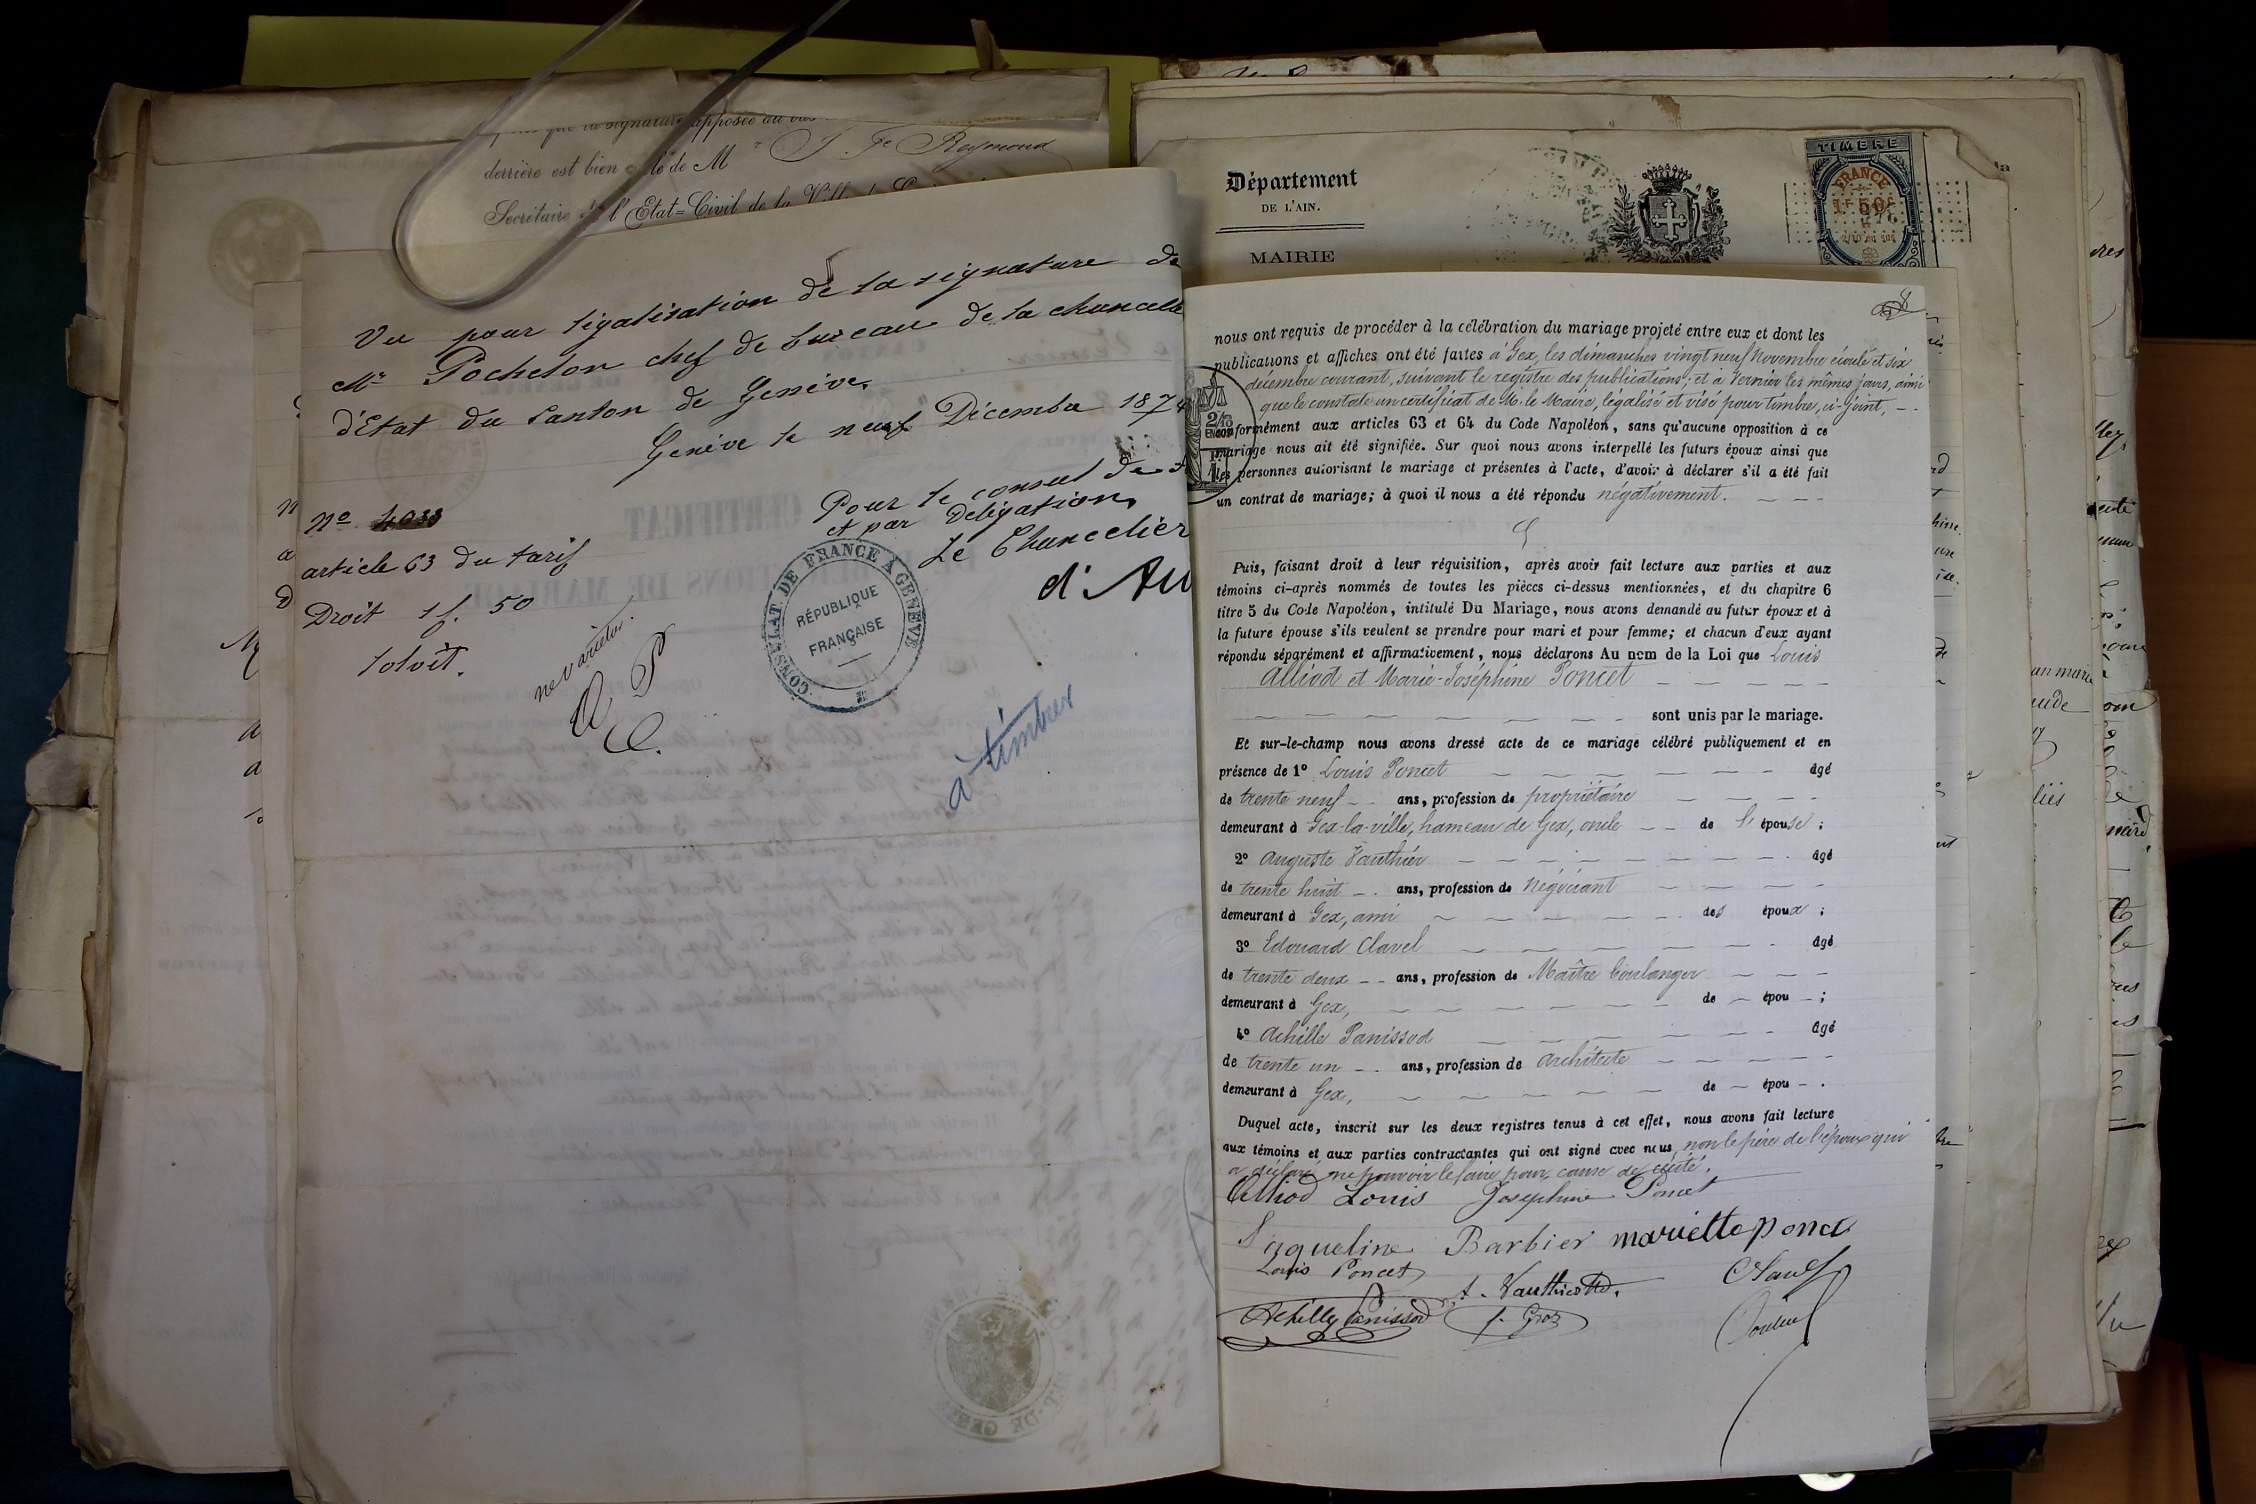 derrière est bien celle de M J. Fs Raymond
Secrétaire de l'Etat=Civil de la
Vu pour légalisation de la signature de
Mr Pochelon chef de bureau de la chancelle
d'Etat du Canton de Genève.
Genève le neuf Décembre 1874
Pour le consul de
et par Délégation,
Le Chancelier
d'Au
No 4033
article 63 du tarif
Droit 1f. 50
solvit.
ne varietur.
CONSULAT DE FRANCE A GENÈVE
RÉPUBLIQUE
FRANÇAISE
à timbrer
Département
DE L'AIN.
MAIRIE
TIMBRE
FRANCE
1F 50c
nous ont requis de procéder à la célébration du mariage projeté entre eux et dont les
publications et affiches ont été faites à Gex, les dimanches vingt neuf Novembre écoulé et six
décembre courant, suivant le registre des publications; et à Vernier les mêmes jours, ainsi
que le constate un certificat de M. le Maire, légalisé et visé pour timbre, ci-joint, - -
conformément aux articles 63 et 64 du Code Napoléon, sans qu'aucune opposition à ce
mariage nous ait été signifiée. Sur quoi nous avons interpellé les futurs époux ainsi que
les personnes autorisant le mariage et présentes à l'acte, d'avoir à déclarer s'il a été fait
un contrat de mariage; à quoi il nous a été répondu négativement.
Puis, faisant droit à leur réquisition, après avoir fait lecture aux parties et aux
témoins ci-après nommés de toutes les pièces ci-dessus mentionnées, et du chapitre 6
titre 5 du Code Napoléon, intitulé Du Mariage, nous avons demandé au futur époux et à
la future épouse s'ils veulent se prendre pour mari et pour femme; et chacun d'eux ayant
répondu séparément et affirmativement, nous déclarons Au nom de la Loi que Louis
Alliod et Marie-Joséphine Poncet
sont unis par le mariage.
Et sur-le-champ nous avons dressé acte de ce mariage célébré publiquement et en
présence de 1º Louis Poncet âgé
de trente neuf ans, profession de propriétaire
demeurant à Gex-la-ville, hameau de Gex, oncle de l'épouse;
2º Auguste Vauthier âgé
de trente huit ans, profession de Négociant
demeurant à Gex, ami des époux;
3º Edouard Clavel âgé
de trente deux ans, profession de Maître boulanger
demeurant à Gex, de épou ;
4º Achille Panissod âgé
de trente un ans, profession de Architecte
demeurant à Gex, de épou .
Duquel acte, inscrit sur les deux registres tenus à cet effet, nous avons fait lecture
aux témoins et aux parties contractantes qui ont signé avec nous, non le père de l'époux qui
a déclaré ne pouvoir le faire pour cause de cécité.
Alliod Louis Josephine Poncet
Jaqueline Barbier mariette ponce
Louis Poncet A. Vauthier Clavel
Achille Panissod f. Groz